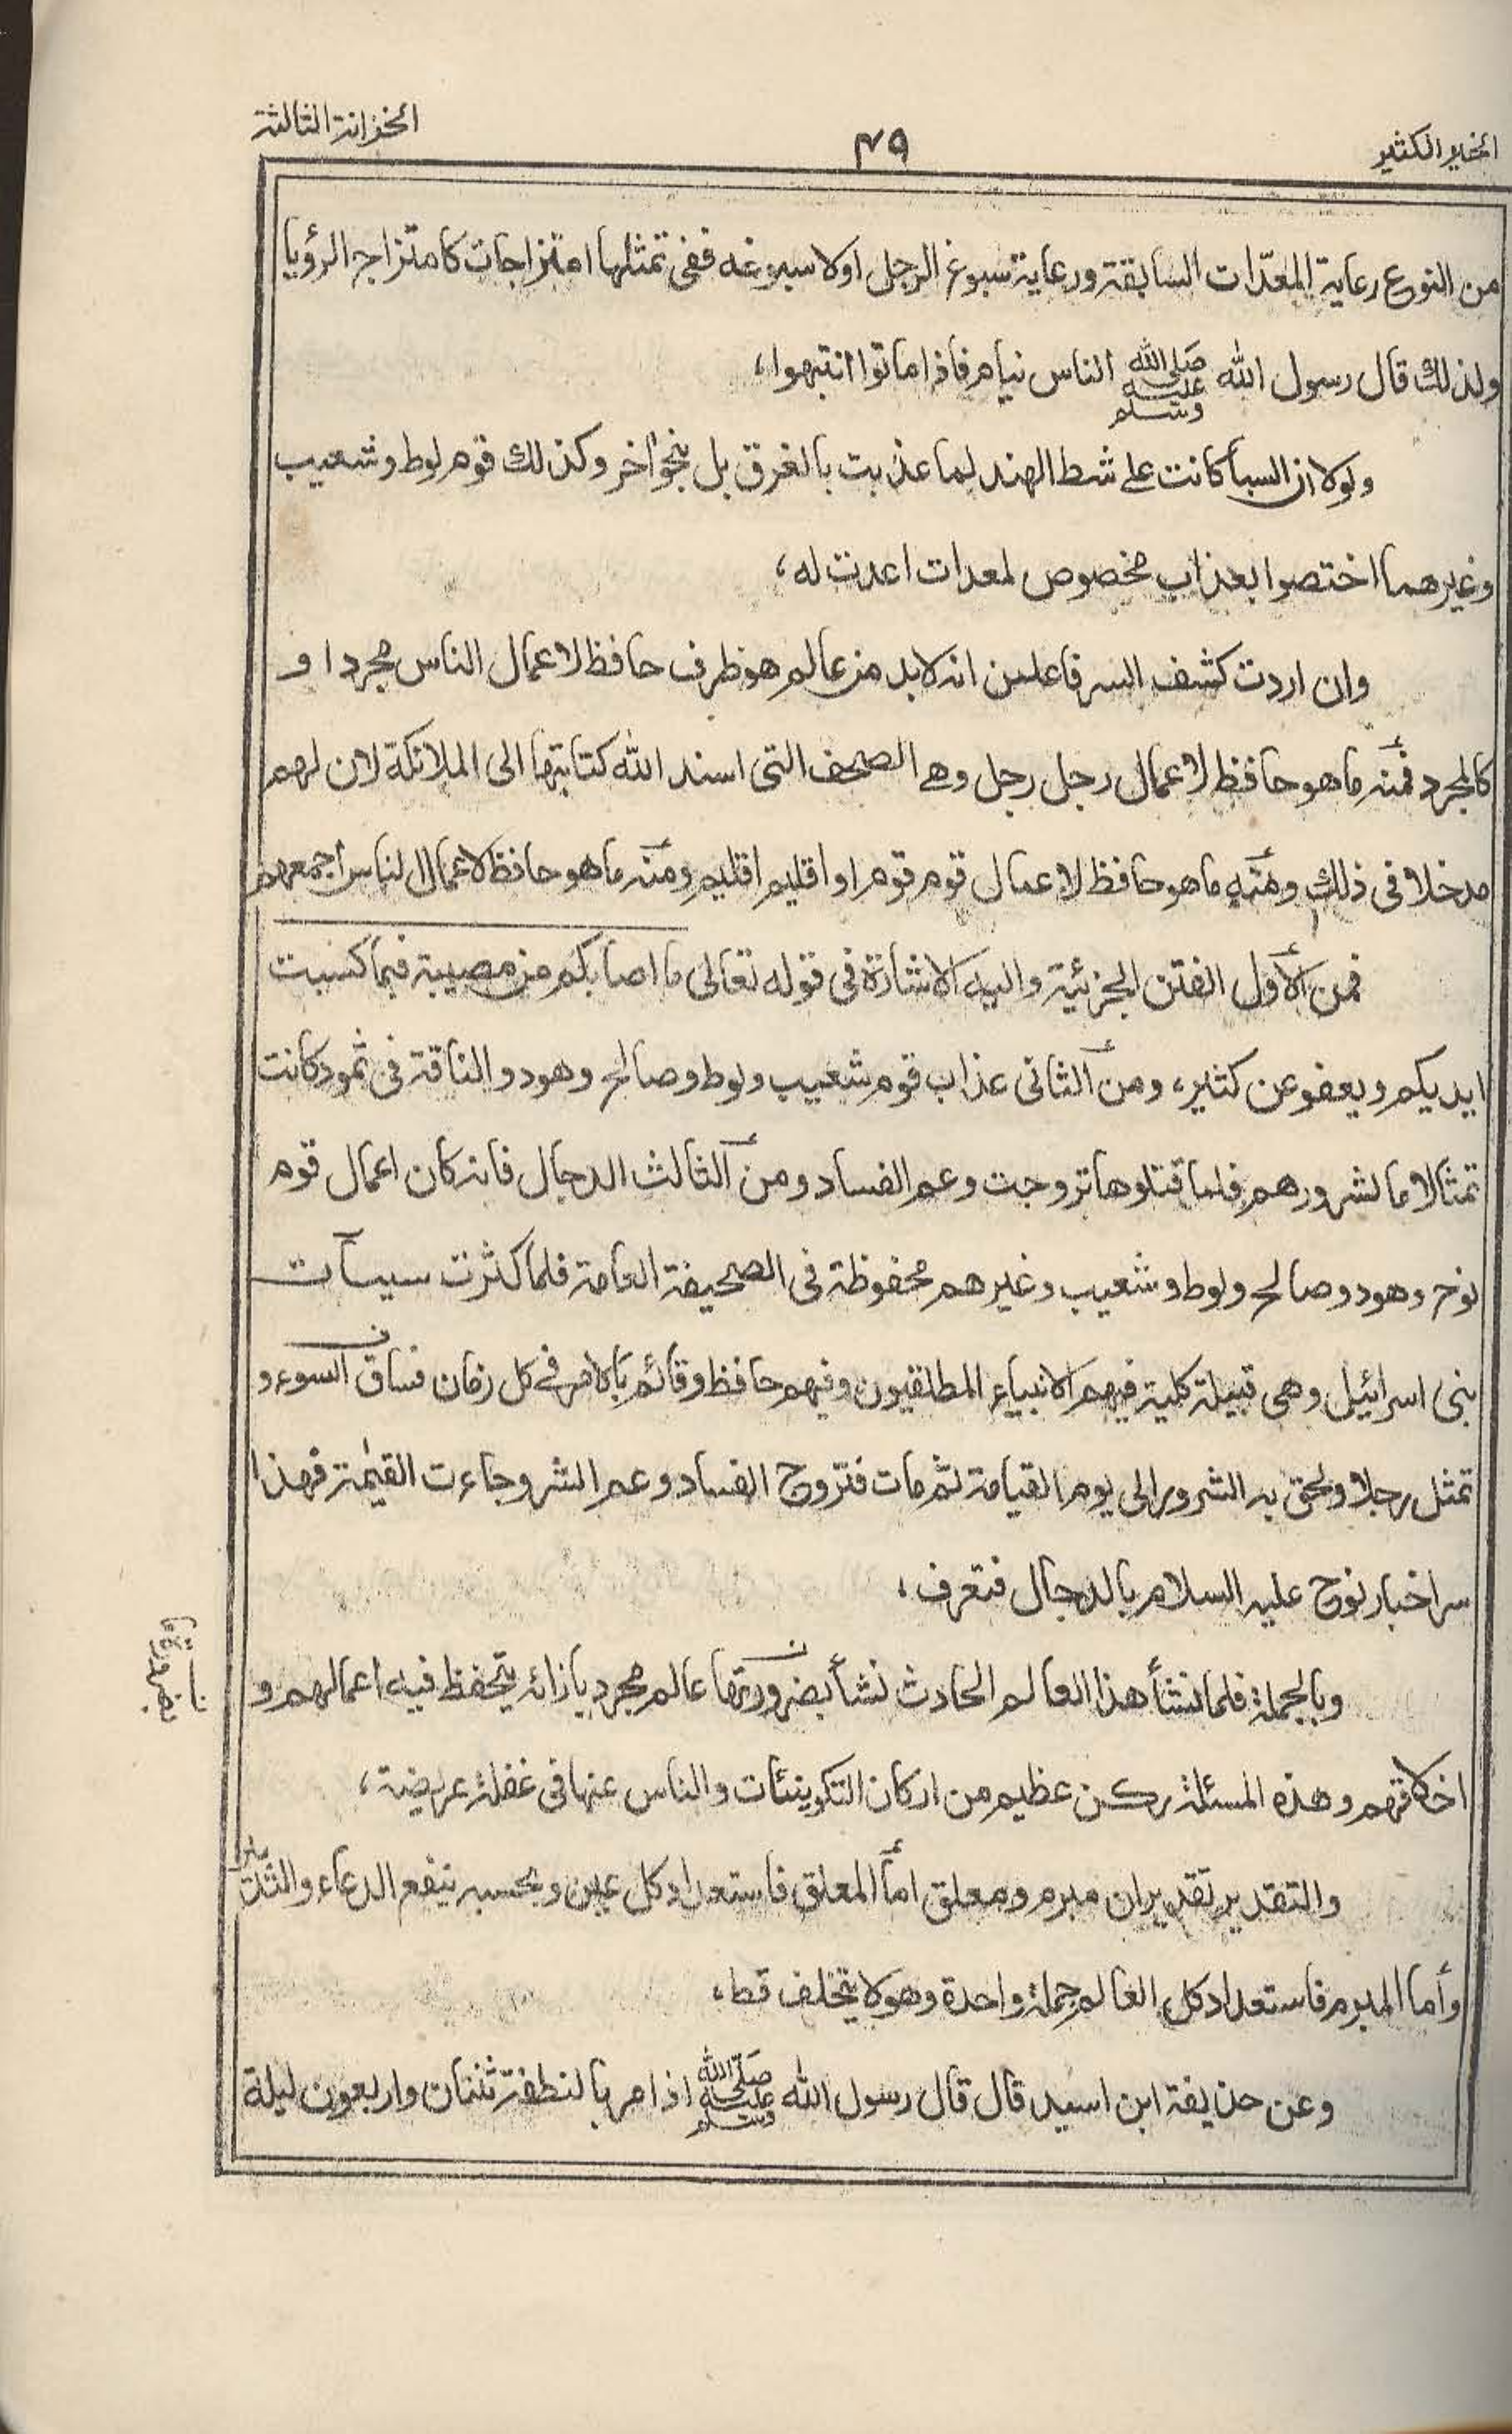 الخير الكثير
۴۹
الخزانة الثالثة
من النوع رعاية المعدّات السابقة ورعاية سبوغ الرجل اولا سبوغه ففي تمثلها امتزاجات كامتزاج الرؤيا
ولذلك قال رسول الله صلى الله عليه وسلم الناس نيام فاذا ماتوا انتبهوا،
ولولا ان السبأ كانت على شط الهند لما عذبت بالغرق بل بنحو اخر وكذلك قوم لوط وشعيب
وغيرهما اختصوا بعذاب مخصوص لمعدات اعدت له،
وان اردت كشف السر فاعلمن انه لا بد من عالم هو ظرف حافظ لاعمال الناس مجردا و
كالمجرد فمنه ما هو حافظ لاعمال رجل رجل وهي الصحف التى اسند الله كتابتها الى الملائكة لان لهم
مدخلا فى ذلك ومنه ما هو حافظ لاعمال قوم قوم او اقليم اقليم ومنه ما هو حافظ لاعمال الناس اجمعهم
فمن الأول الفتن الجزئية واليه الاشارة فى قوله تعالى ما اصابكم من مصيبة فبما كسبت
ايديكم ويعفو عن كثير، ومن الثانى عذاب قوم شعيب ولوط وصالح وهود والناقة فى ثمود كانت
تمثالا ما لشرورهم فلما قتلوها تروجت وعم الفساد ومن الثالث الدجال فانه كان اعمال قوم
نوح وهود وصالح ولوط وشعيب وغيرهم محفوظة فى الصحيفة العامة فلما كثرت سيئات
بنى اسرائيل وهى قبيلة كلية فيهم الانبياء المطلقيون وفيهم حافظ وقائم بالامر فى كل زمان فساق السوء و
تمثل رجلا ولحق به الشرور الى يوم القيامة ثم مات فتروج الفساد وعم الشر وجاءت القيٰمة فهذا
سر اخبار نوح عليه السلام بالدجال فتعرف،
وبالجملة فلما نشأ هذا العالم الحادث نشأ بضرورتها عالم مجرد بازائه يتحفظ فيه اعمالهم و
اخلاقهم وهذه المسئلة ركن عظيم من اركان التكوينئات والناس عنها فى غفلة عريضة،
والتقدير تقديران مبرم ومعلق أما المعلق فاستعداد كل عين وبحسبه ينفع الدعاء والتدبير
وأما المبرم فاستعداد كل العالم جملة واحدة وهو لا يتخلف قط،
وعن حذيفة ابن اسيد قال قال رسول الله صلى الله عليه وسلم اذا مر بالنطفة ثنتان واربعون ليلة